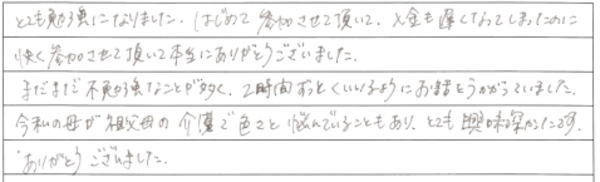 とても勉強になりました。はじめて参加させて頂いて、入金も遅くなってしまったのに
快く参加させて頂いて本当にありがとうございました。
まだまだ不勉強なことが多く、2時間ずっとくいいるようにお話をうかがっていました。
今私の母が祖父母の介護で色々と悩んでいることもあり、とても興味深かったです。
ありがとうございました。